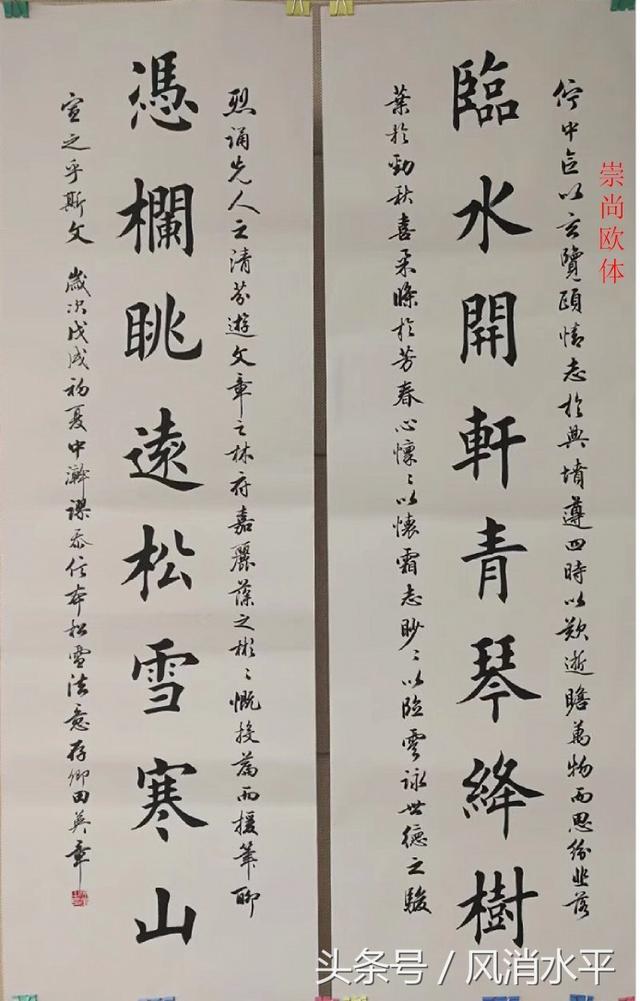 佇中區以玄覽頤情志於典墳遵四時以歎逝瞻萬物而思紛悲落
臨水開軒青琴絳樹
葉於勁秋喜柔條於芳春心懍〻以懷霜志眇〻以臨雲詠世德之駿
烈誦先人之清芬遊文章之林府嘉麗藻之彬〻慨投篇而援筆聊
憑欄眺遠松雪寒山
宣之乎斯文 歲次戊戌初夏中澣謬忝信本松雪法意存卿田英章
崇尚欧体
头条号 / 风消水平